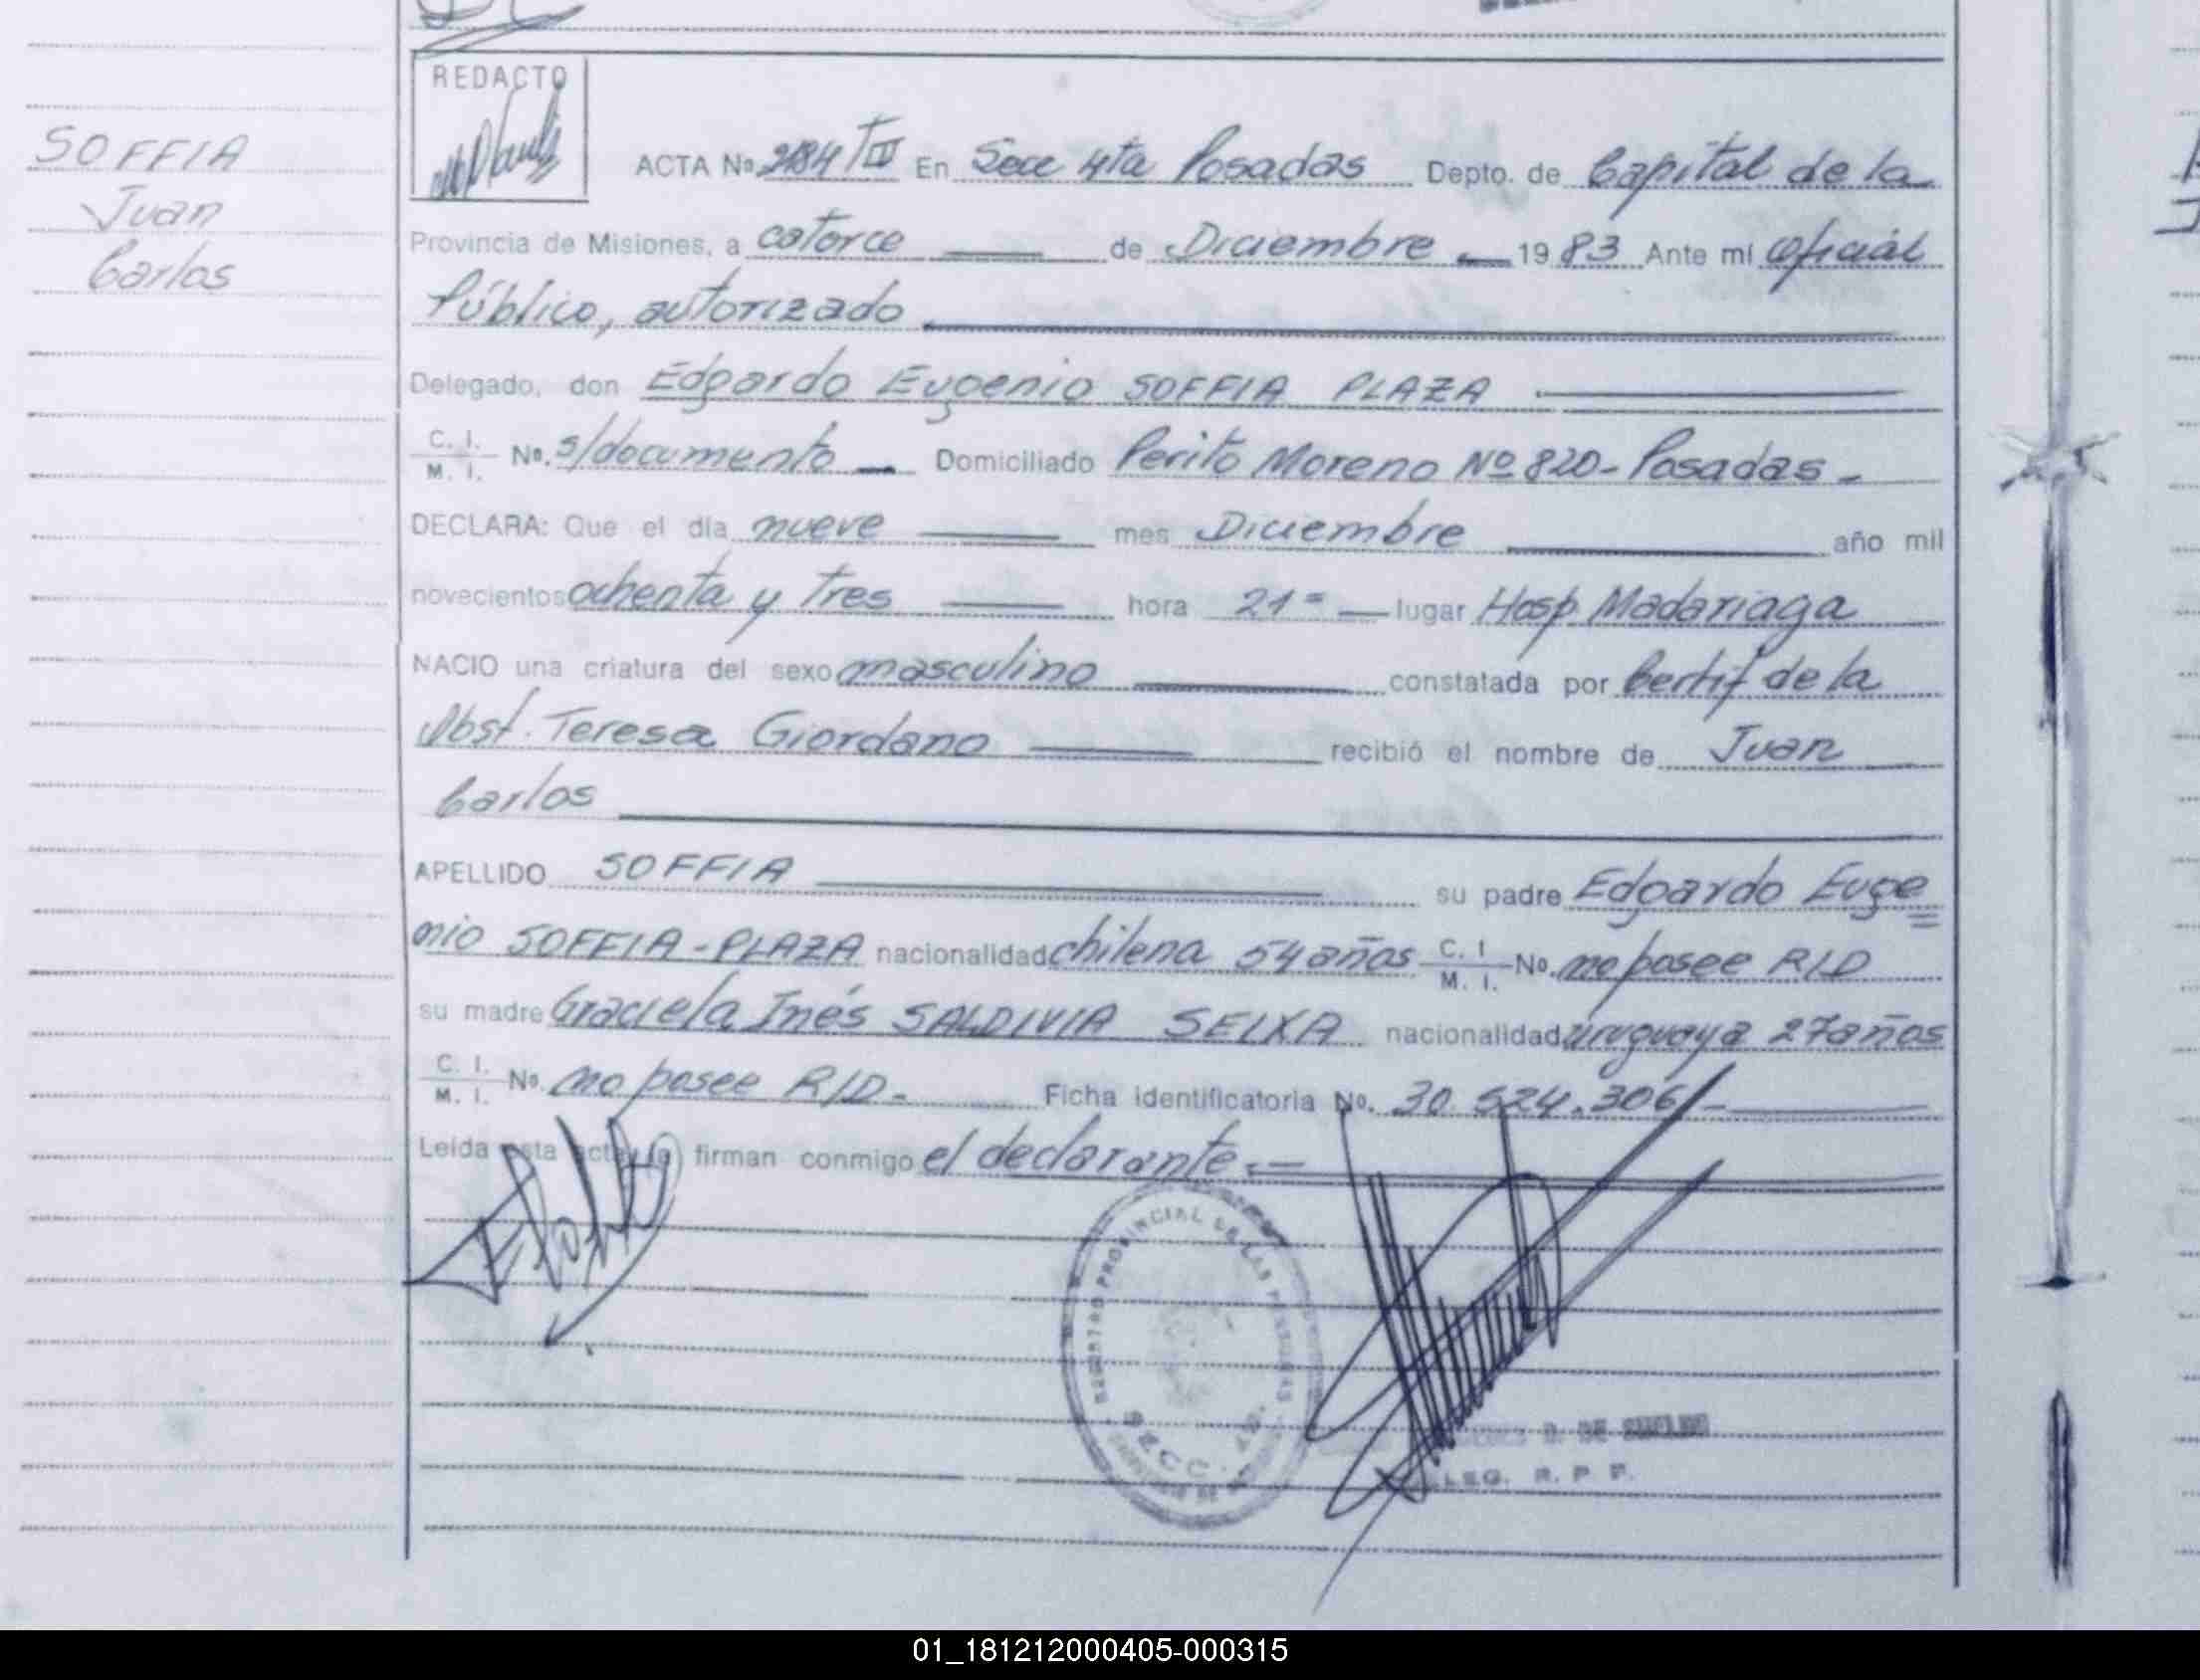 REDACTO
SOFFIA
Juan
Carlos
ACTA No. 2184 TIII En Secc 4ta Posadas Depto. de Capital de la
Provincia de Misiones, a catorce de Diciembre 1983 Ante mí oficial
Público, autorizado
Delegado, don Edgardo Eugenio SOFFIA PLAZA
C. I. M. I. No. s/documento Domiciliado Perito Moreno Nº 820 - Posadas -
DECLARA: Que el día nueve mes Diciembre año mil
novecientos ochenta y tres hora 21= lugar Hosp. Madariaga
NACIO una criatura del sexo masculino constatada por Certif de la
Obst. Teresa Giordano recibió el nombre de Juan
Carlos
APELLIDO SOFFIA su padre Edgardo Euge
nio SOFFIA-PLAZA nacionalidad chilena 54 años C. I M. I. No. no posee R/D
su madre Graciela Inés SALDIVIA SEIXA nacionalidad uruguaya 27 años
C. I. M. I. No. no posee R/D.- Ficha identificatoria No. 30.524.306/-
Leída esta acta la firman conmigo el declarante.-
REGISTRO PROVINCIAL DE LAS PERSONAS
SECC. 4a.
DE
R. P. P.
01_181212000405-000315